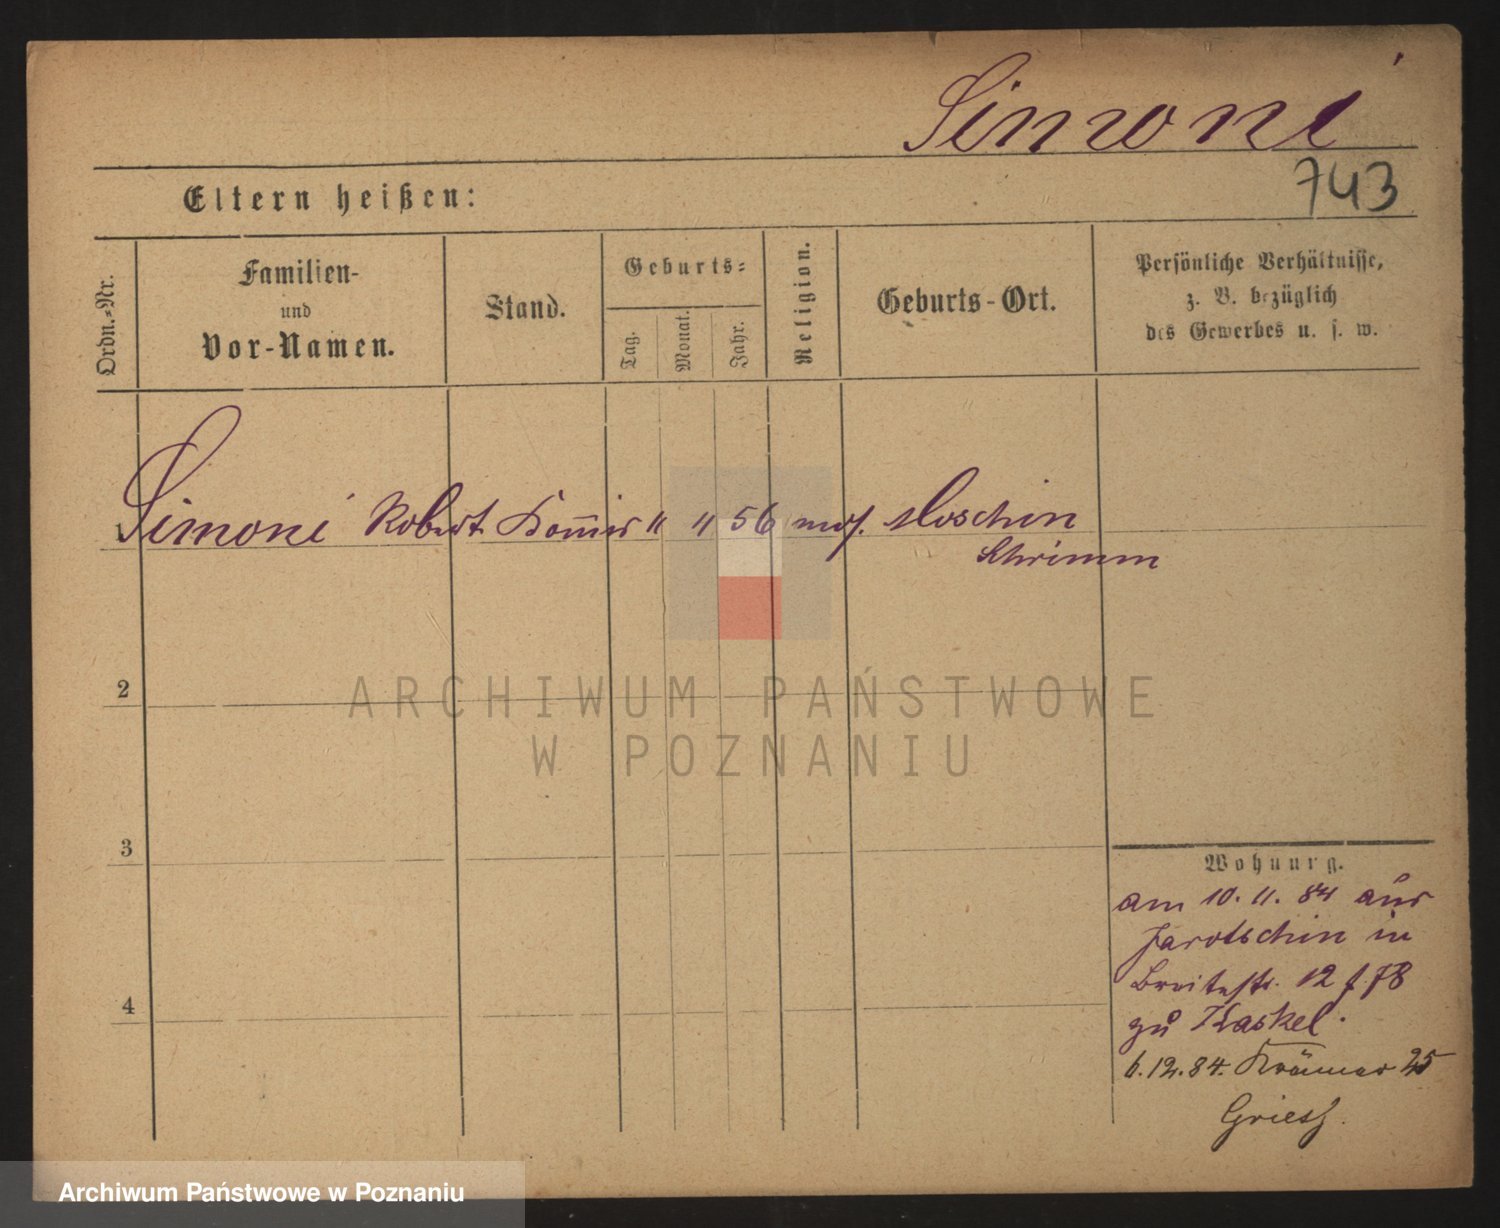 Simoni
743
Eltern heißen:
Ordn.-Nr.
Familien-
und
Vor-Namen.
Stand.
Geburts-
Tag.
Monat.
Jahr.
Religion.
Geburts-Ort.
Persönliche Verhältnisse,
z. B. bezüglich
des Gewerbes u. s. w.
Simoni Robert Kommis " " 56 mos. Moschin
Schrimm
2
3
4
Wohnung.
am 10. 11. 84 aus
Jarotschin in
Breitestr. 12 f. 78
zu Kaskel.
6.12.84. Krämer 25
ARCHIWUM PAŃSTWOWE
W POZNANIU
Archiwum Państwowe w Poznaniu